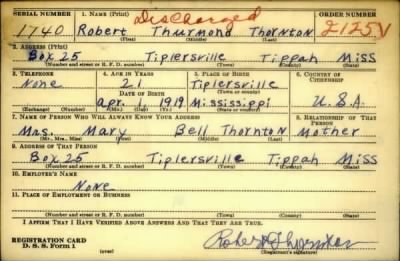 SERIAL NUMBER 1. NAME (Print) Discharged ORDER NUMBER
1740 Robert Thurmond Thornton 2125V
(First) (Middle) (Last)
2. ADDRESS (Print)
Box 25 Tiplersville Tippah Miss
(Number and street or R. F. D. number) (Town) (County) (State)
3. TELEPHONE 4. AGE IN YEARS 5. PLACE OF BIRTH 6. COUNTRY OF CITIZENSHIP
None 21 Tiplersville
DATE OF BIRTH (Town or county)
Apr. 1919 Mississippi U.S.A.
(Exchange) (Number) (Mo.) (Day) (Yr.) (State or country)
7. NAME OF PERSON WHO WILL ALWAYS KNOW YOUR ADDRESS 8. RELATIONSHIP OF THAT PERSON
Mrs. Mary Bell Thornton Mother
(Mr., Mrs., Miss) (First) (Middle) (Last)
9. ADDRESS OF THAT PERSON
Box 25 Tiplersville Tippah Miss
(Number and street or R. F. D. number) (Town) (County) (State)
10. EMPLOYER'S NAME
None
11. PLACE OF EMPLOYMENT OR BUSINESS
(Number and street or R. F. D. number) (Town) (County) (State)
I AFFIRM THAT I HAVE VERIFIED ABOVE ANSWERS AND THAT THEY ARE TRUE.
REGISTRATION CARD
D. S. S. Form 1 (over) Robert Thornton
(Registrant's signature)